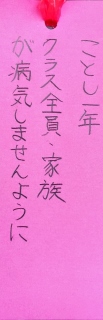 ことし一年
クラス全員、家族
が病気しませんように